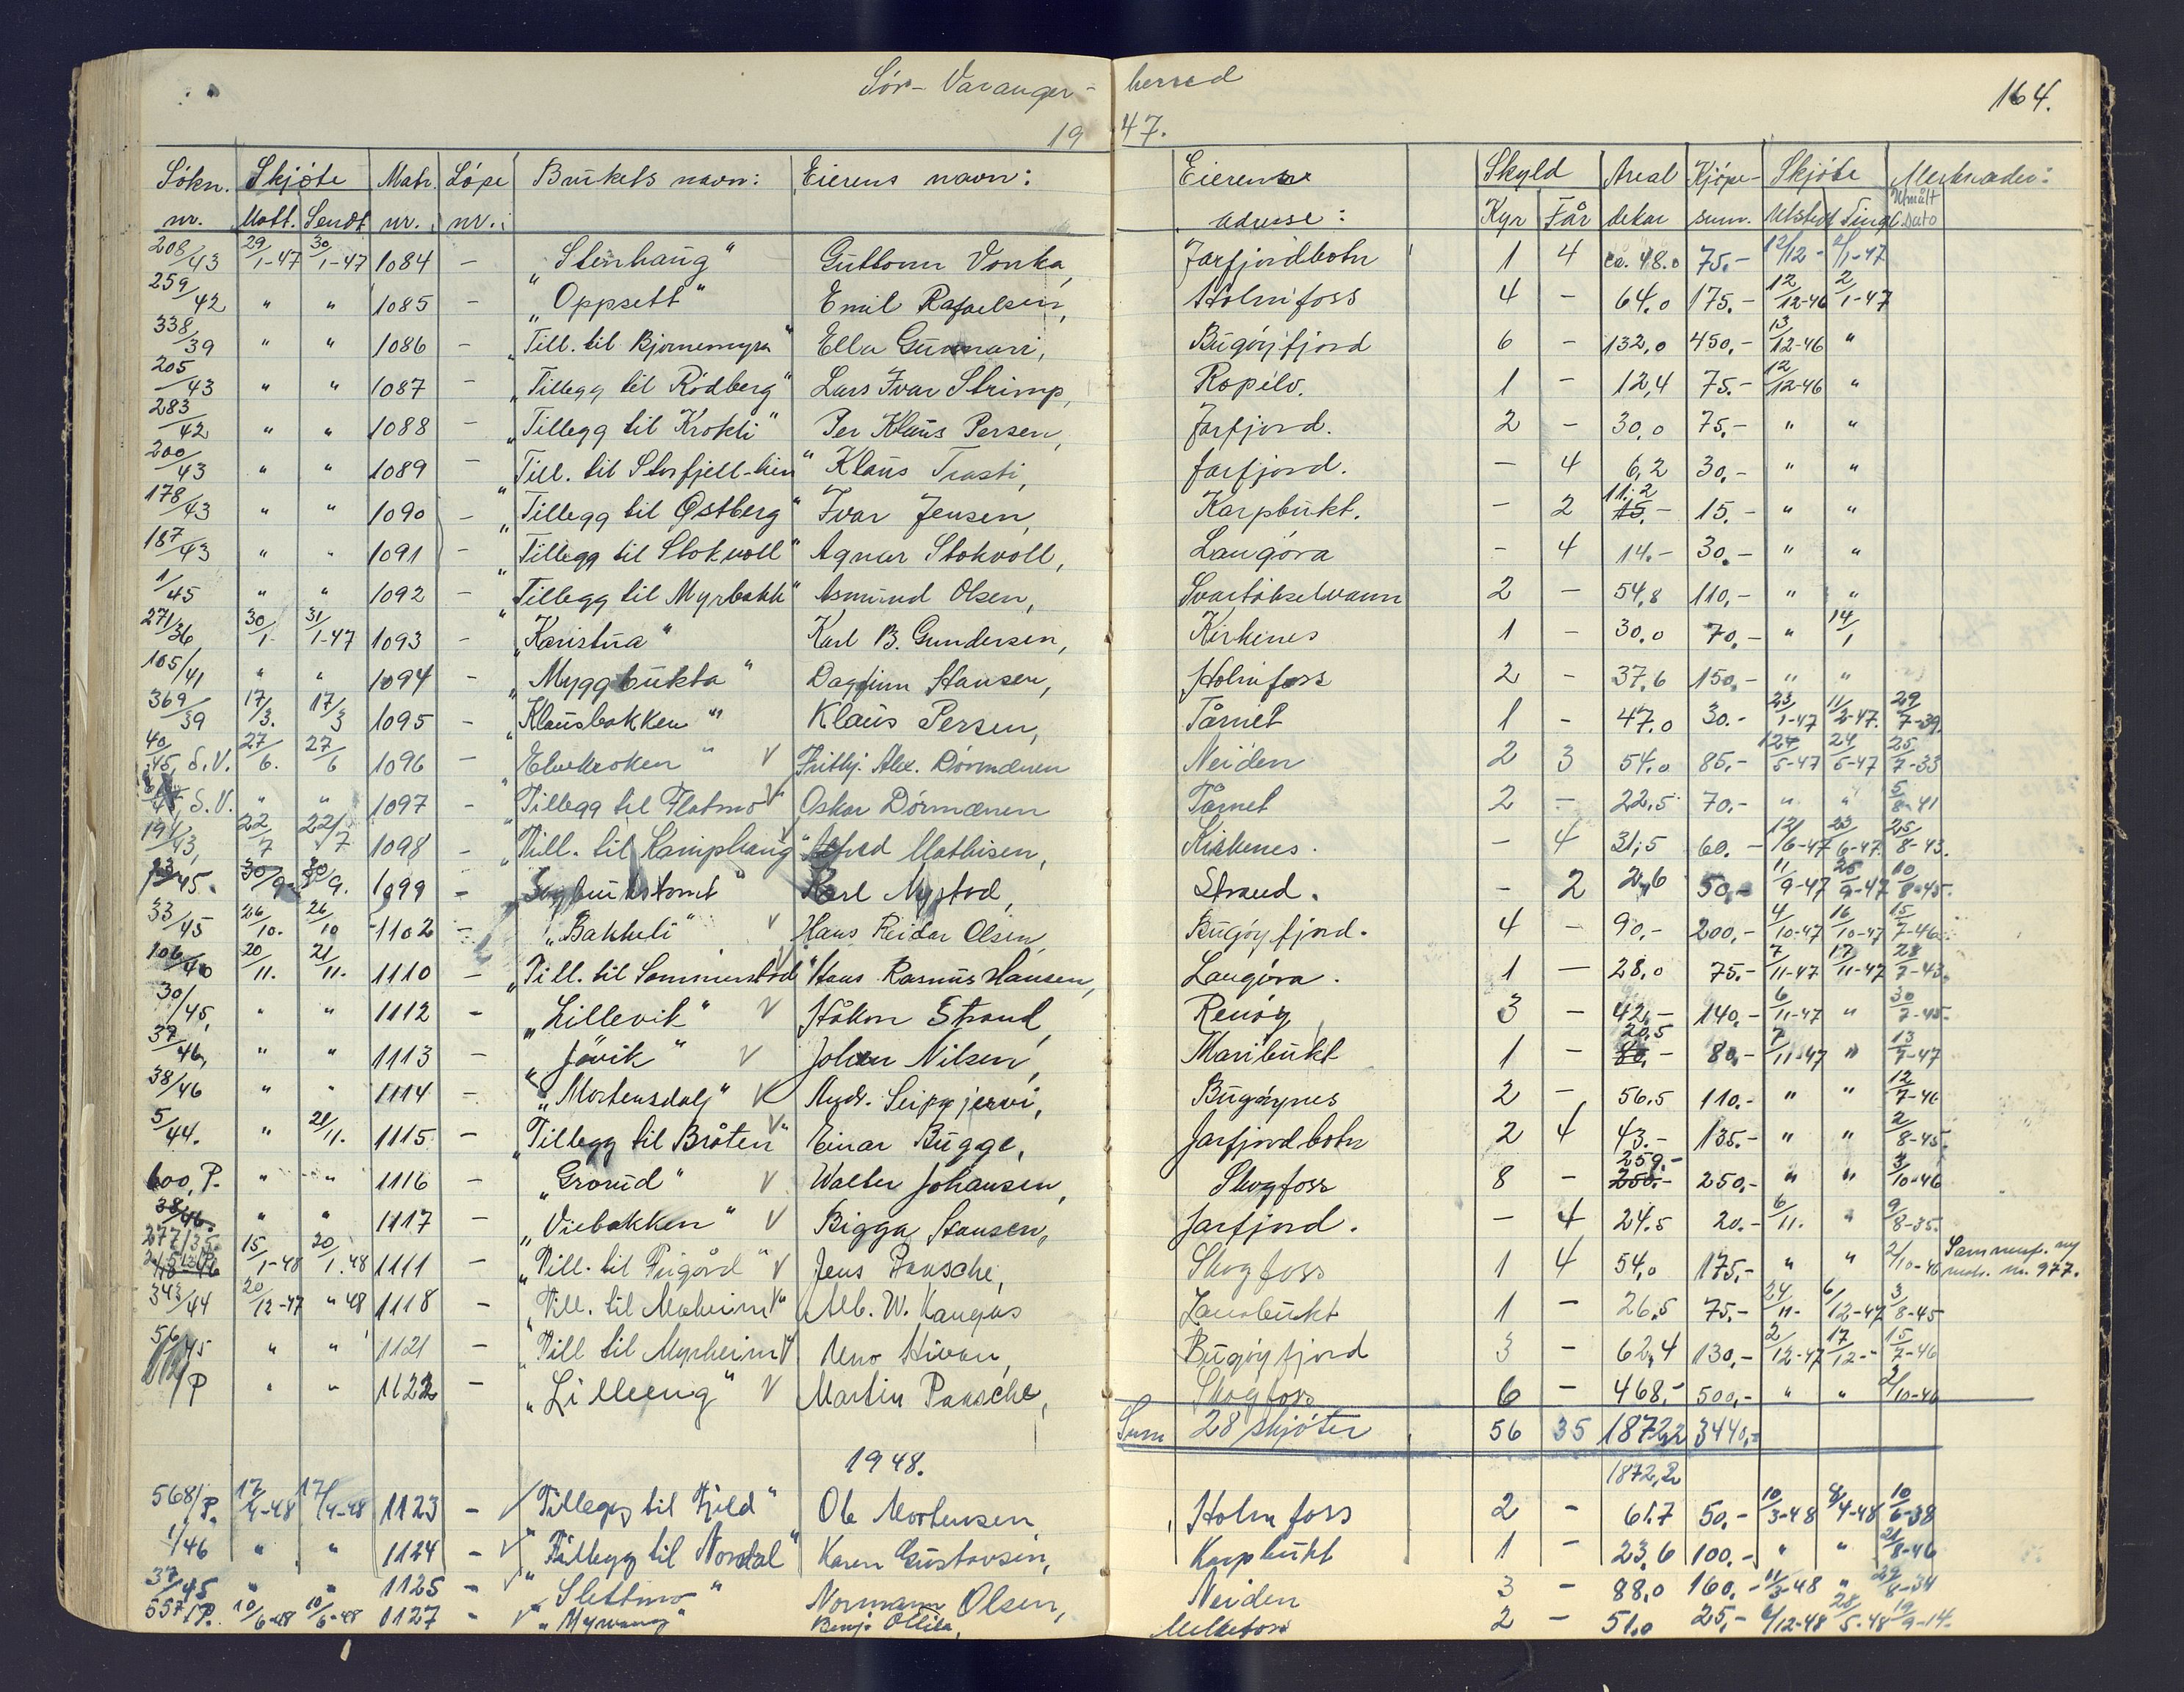 Sör-Varanger- herred
164.
1947.
Sökn. nr. Skjöte Mott. Sendt Matr. nr. Löpe nr.: Brukets navn: Eierens navn: Eierens adresse: Skyld Kyr Får Areal dekar Kjöpe- sum. Skjöte Utstedt Tingl. Merknader: Utmålt dato
208/43 29/1-47 30/1-47 1084 - "Stenhaug" Guttorm Vonka, Jarfjordbotn 1 4 ca. 48.0 75.- 12/12 - 2/1-47
259/42 " " 1085 - "Oppsett" Emil Rafaelsen, Holmfoss 4 - 64.0 175.- 12/12-46 2/1-47
338/39 " " 1086 - "Till. til Bjørnemyra" Ella Gunnari, Bugöyfjord 6 - 132,0 450.- 13/12-46 "
205/43 " " 1087 - "Tillegg til Rödberg" Lars Ivar Strimp, Ropelv. 1 - 12,4 75.- 12/12-46 "
283/42 " " 1088 - "Tillegg til Krokli" Per Klaus Persen, Jarfjord. 2 - 30,0 75,- " "
200/43 " " 1089 - "Till. til Storfjell-lien" Klaus Trasti, Jarfjord. - 4 6,2 30,- " "
178/43 " " 1090 - "Tillegg til Østberg" Ivar Jensen, Karpbukt. - 2 11.2 15.- 15.- " "
187/43 " " 1091 - "Tillegg til Stokvoll" Agnar Stokvoll, Langöra - 4 14.- 30.- " "
1/45 " " 1092 - "Tillegg til Myrbakk" Asmund Olsen, Svartåkselvann 2 - 54,8 110,- " "
271/36 30/1- 31/1-47 1093 - "Karistua" Karl B. Gundersen, Kirkenes 1 - 30.0 70.- " 14/1
105/41 " " 1094 - "Myggbukta" Dagfinn Hansen, Holmfoss 2 - 37,6 150,- " "
369/39 17/3. 17/3 1095 - "Klausbakken" Klaus Persen, Tårnet 1 - 47.0 30.- 23/1-47 11/2-47. 29/7-39.
40/45, S.V. 27/6. 27/6 1096 - "Elvekroken" V Frithj. Alex. Dörmænen Neiden 2 3 54.0 85.- 24/5-47 25/7-33
S.V. " " 1097 - "Tillegg til Flatmo" V Oskar Dörmænen Tårnet 2 - 22.5 70.- " " 5/8-41
191/43, 22/7 22/7 1098 - "Till. til Kamphaug" V Alfred Mathisen, Kirkenes. - 4 31,5 60.- 12/6-47 23/6-47. 25/8-43.
45. 30/9- 30/9. 1099 - "Sagbrukstomt" Karl Nystad, Strand. - 2 2,6 50,- 11/9-47 25/9-47 10/8-45.
33/45 26/10. 26/10 1102 - "Bakkeli" V Hans Reidar Olsen, Bugöyfjord. 4 - 90,- 200,- 4/10-47 16/10-47 15/7-46.
106/40 20/11. 21/11. 1110 - "Till. til Sommerstad" V Hans Rasmus Hansen, Langöra. 1 - 28.0 75.- 7/11-47 17/11-47 23/7-43.
30/45, " " 1112 - "Lillevik" V Håkon Strand, Renöy 3 - 42,- 140,- 6/11-47 " 30/7-45.
37/46, " " 1113 - "Jövik" V Johan Nilsen, Maribukt 1 - 20.5 80.- 80,- 7/11-47 " 13/7-47
38/46 " " 1114 - "Mortensdalj" V Andr. Seipajervi, Bugöynes 2 - 56.5 110.- " " 12/7-46
5/44. " 21/11. 1115 - "Tillegg til Bråten" V Einar Bugge, Jarfjordbotn 2 4 43.- 135.- " " 2/8-45.
600, P. " " 1116 - "Ground" V Walter Johansen, Skogfoss 8 - 259.- 250.- 250,- " " 3/10-46
38/46. " " 1117 - "Viebakken" V Bigga Hansen, Jarfjord. - 4 24.5 20.- 6/11. " 9/8-35.
277/35. 15/1-48 20/1.48 1111 - "Till. til Frigård" V Jens Paasche, Skogfoss 1 4 54,0 175,- " " 2/10-46 Sammenf. m/ matr. nr. 977.
343/44 20/12-47 " 48 1118 - "Till. til Moheim" V Alb. W. Kangas Lanabukt 1 - 26.5 75,- 24/11- 6/12-47 3/8-45
56/45 " " 1121 - "Till til Myrheim" V Uno Hivan, Bugöyfjord 3 - 62,4 130,- 2/12-47 17/12-" 15/7-46
/P " " 1122 - "Lilleeng" V Martin Paasche, Skogfoss 6 - 468,- 500,- " " 2/10-46
Sum 28 skjöter 56 35 1872,2 3440,-
1948. 1872,2
568/P. 17/4-48 17/4-48 1123 - V "Tillegg til Fjeld" Ole Mortensen, Holmfoss 2 - 61.7 50.- 10/3-48 8/4-48 10/6-38
1/46 " " 1124 - V "Tillegg til Nordal" Karen Gustavsen, Karpbukt 1 - 23,6 100.- " " 21/8-46
37/45 " " 1125 - V "Slettmo" Normann Olsen, Neiden 3 - 88,0 160,- 11/3-48 " 29/8-34
557/P. 10/6-48 10/6-48 1127 - V "Myrvang" Benj. Ollila, Melkefoss 2 - 51,0 25,- 6/12-48 28/5-48 19/9-14.